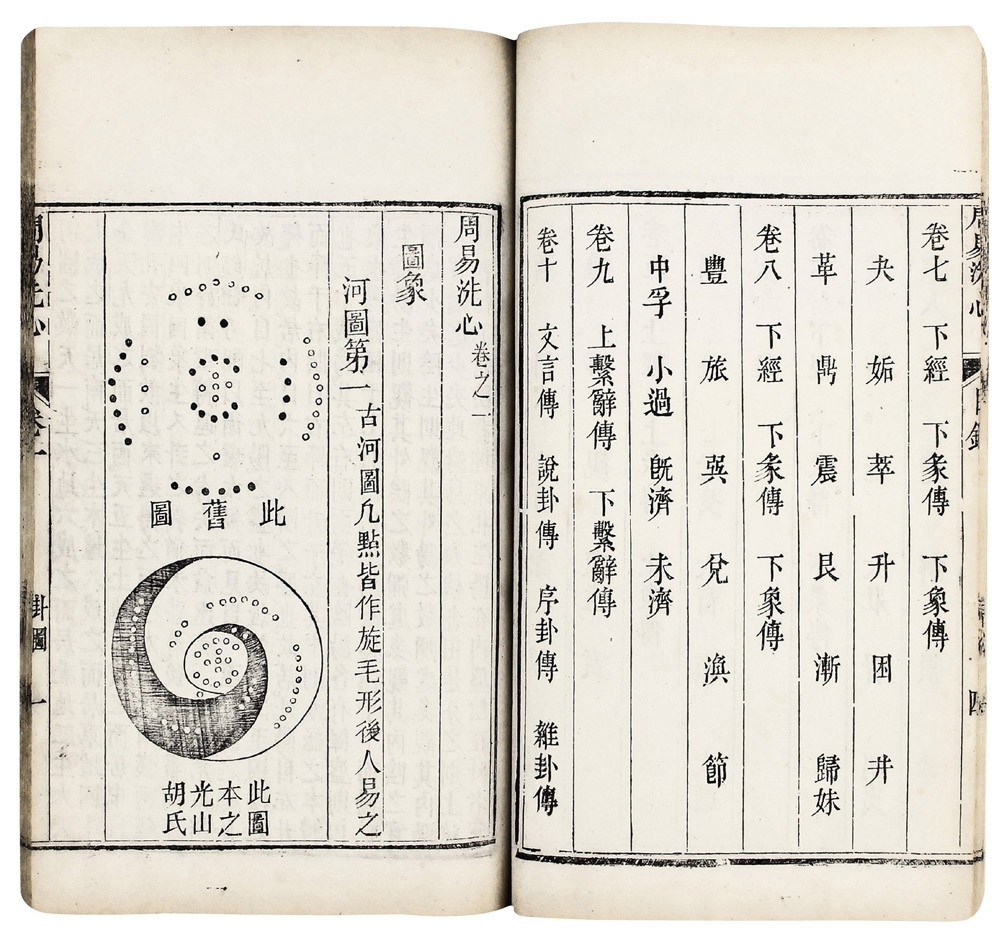 卷七　下經　下彖傳　下象傳
夬　姤　萃　升　困　井
革　鼎　震　艮　漸　歸妹
卷八　下經　下彖傳　下象傳
豐　旅　巽　兌　渙　節
中孚　小過　旣濟　未濟
卷九　上繫辭傳　下繫辭傳
卷十　文言傳　說卦傳　序卦傳　雜卦傳
周易洗心
周易洗心　卷之一
圖象
河圖第一　古河圖凡點皆作旋毛形後人易之
此舊圖
此圖
本之
光山
胡氏
卦圖　一